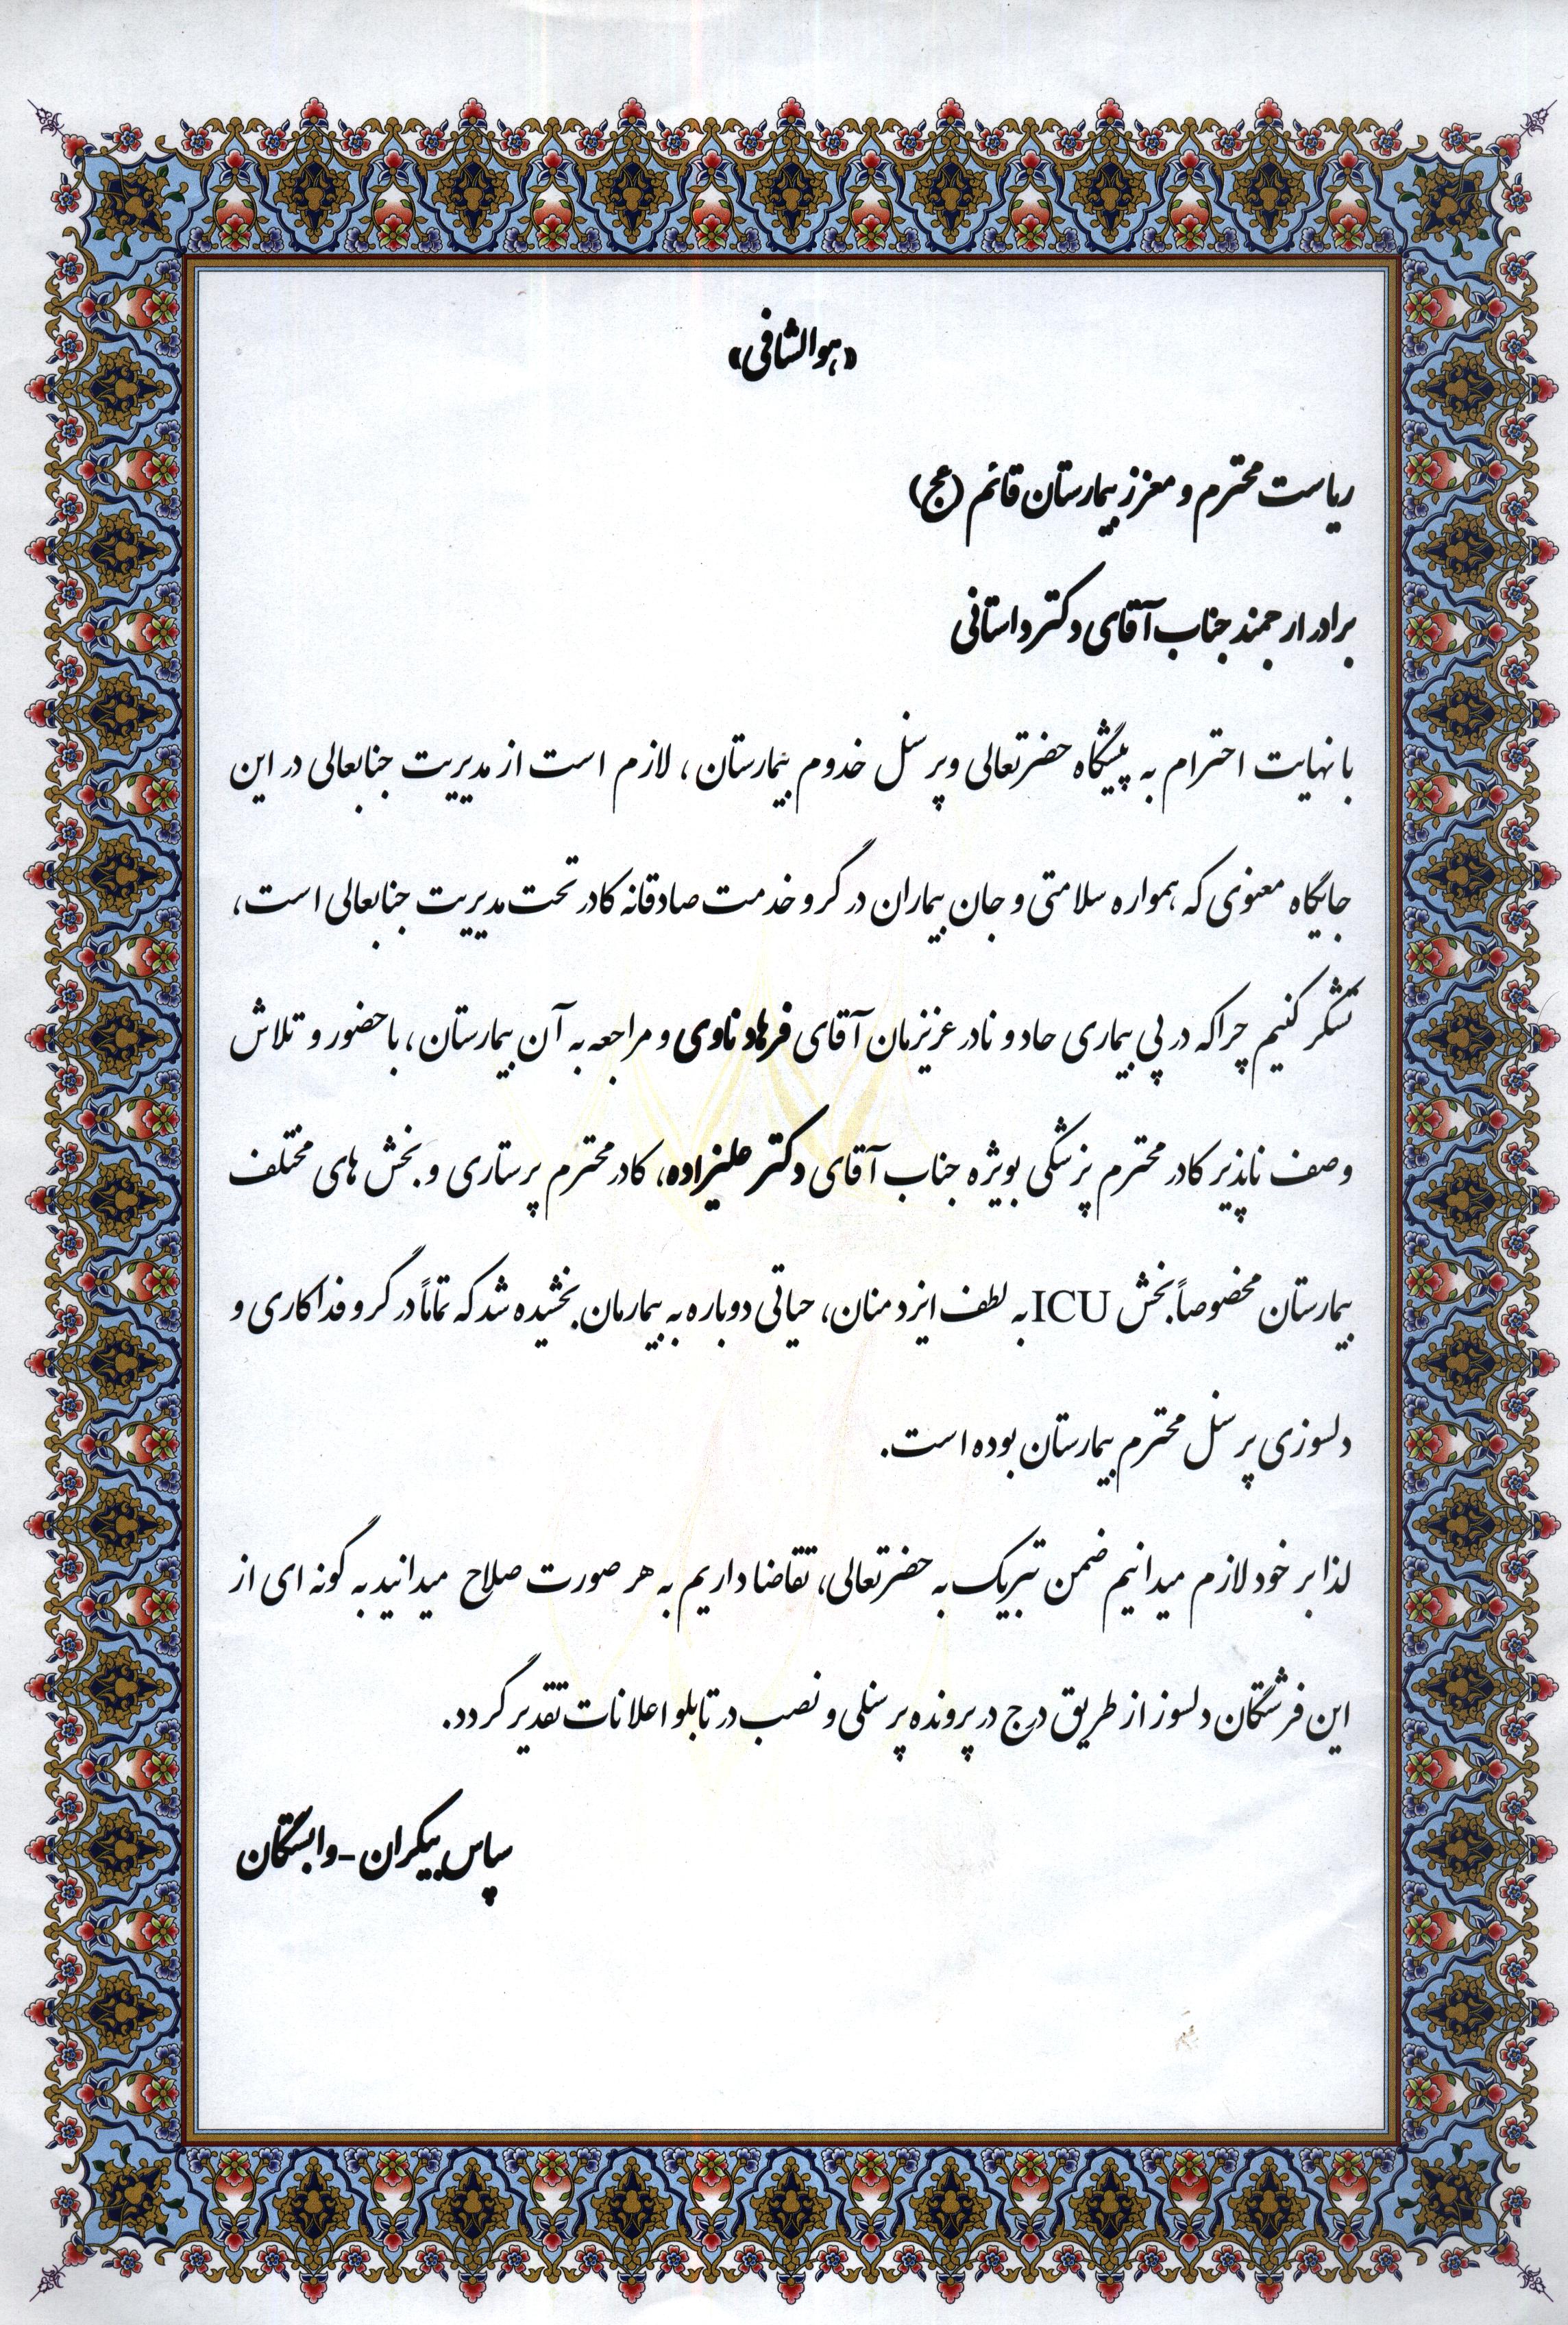 «هوالشافی»
ریاست محترم و معزز بیمارستان قائم (عج)
برادر ارجمند جناب آقای دکتر داستانی
با نهایت احترام به پیشگاه حضرتعالی و پرسنل خدوم بیمارستان ، لازم است از مدیریت جنابعالی در این
جایگاه معنوی که همواره سلامتی و جان بیماران در گرو خدمت صادقانه کادر تحت مدیریت جنابعالی است،
تشکر کنیم چراکه در پی بیماری حاد و نادر عزیزمان آقای فرهاد ناوی و مراجعه به آن بیمارستان، با حضور و تلاش
وصف ناپذیر کادر محترم پزشکی بویژه جناب آقای دکتر علیزاده، کادر محترم پرستاری و بخش های مختلف
بیمارستان مخصوصاً بخش ICU به لطف ایزد منان، حیاتی دوباره به بیمارمان بخشیده شد که تماماً در گرو فداکاری و
دلسوزی پرسنل محترم بیمارستان بوده است.
لذا بر خود لازم میدانیم ضمن تبریک به حضرتعالی، تقاضا داریم به هر صورت صلاح میدانید به گونه ای از
این فرشتگان دلسوز از طریق درج در پرونده پرسنلی و نصب در تابلو اعلانات تقدیر گردد.
سپاس بیکران - وابستگان